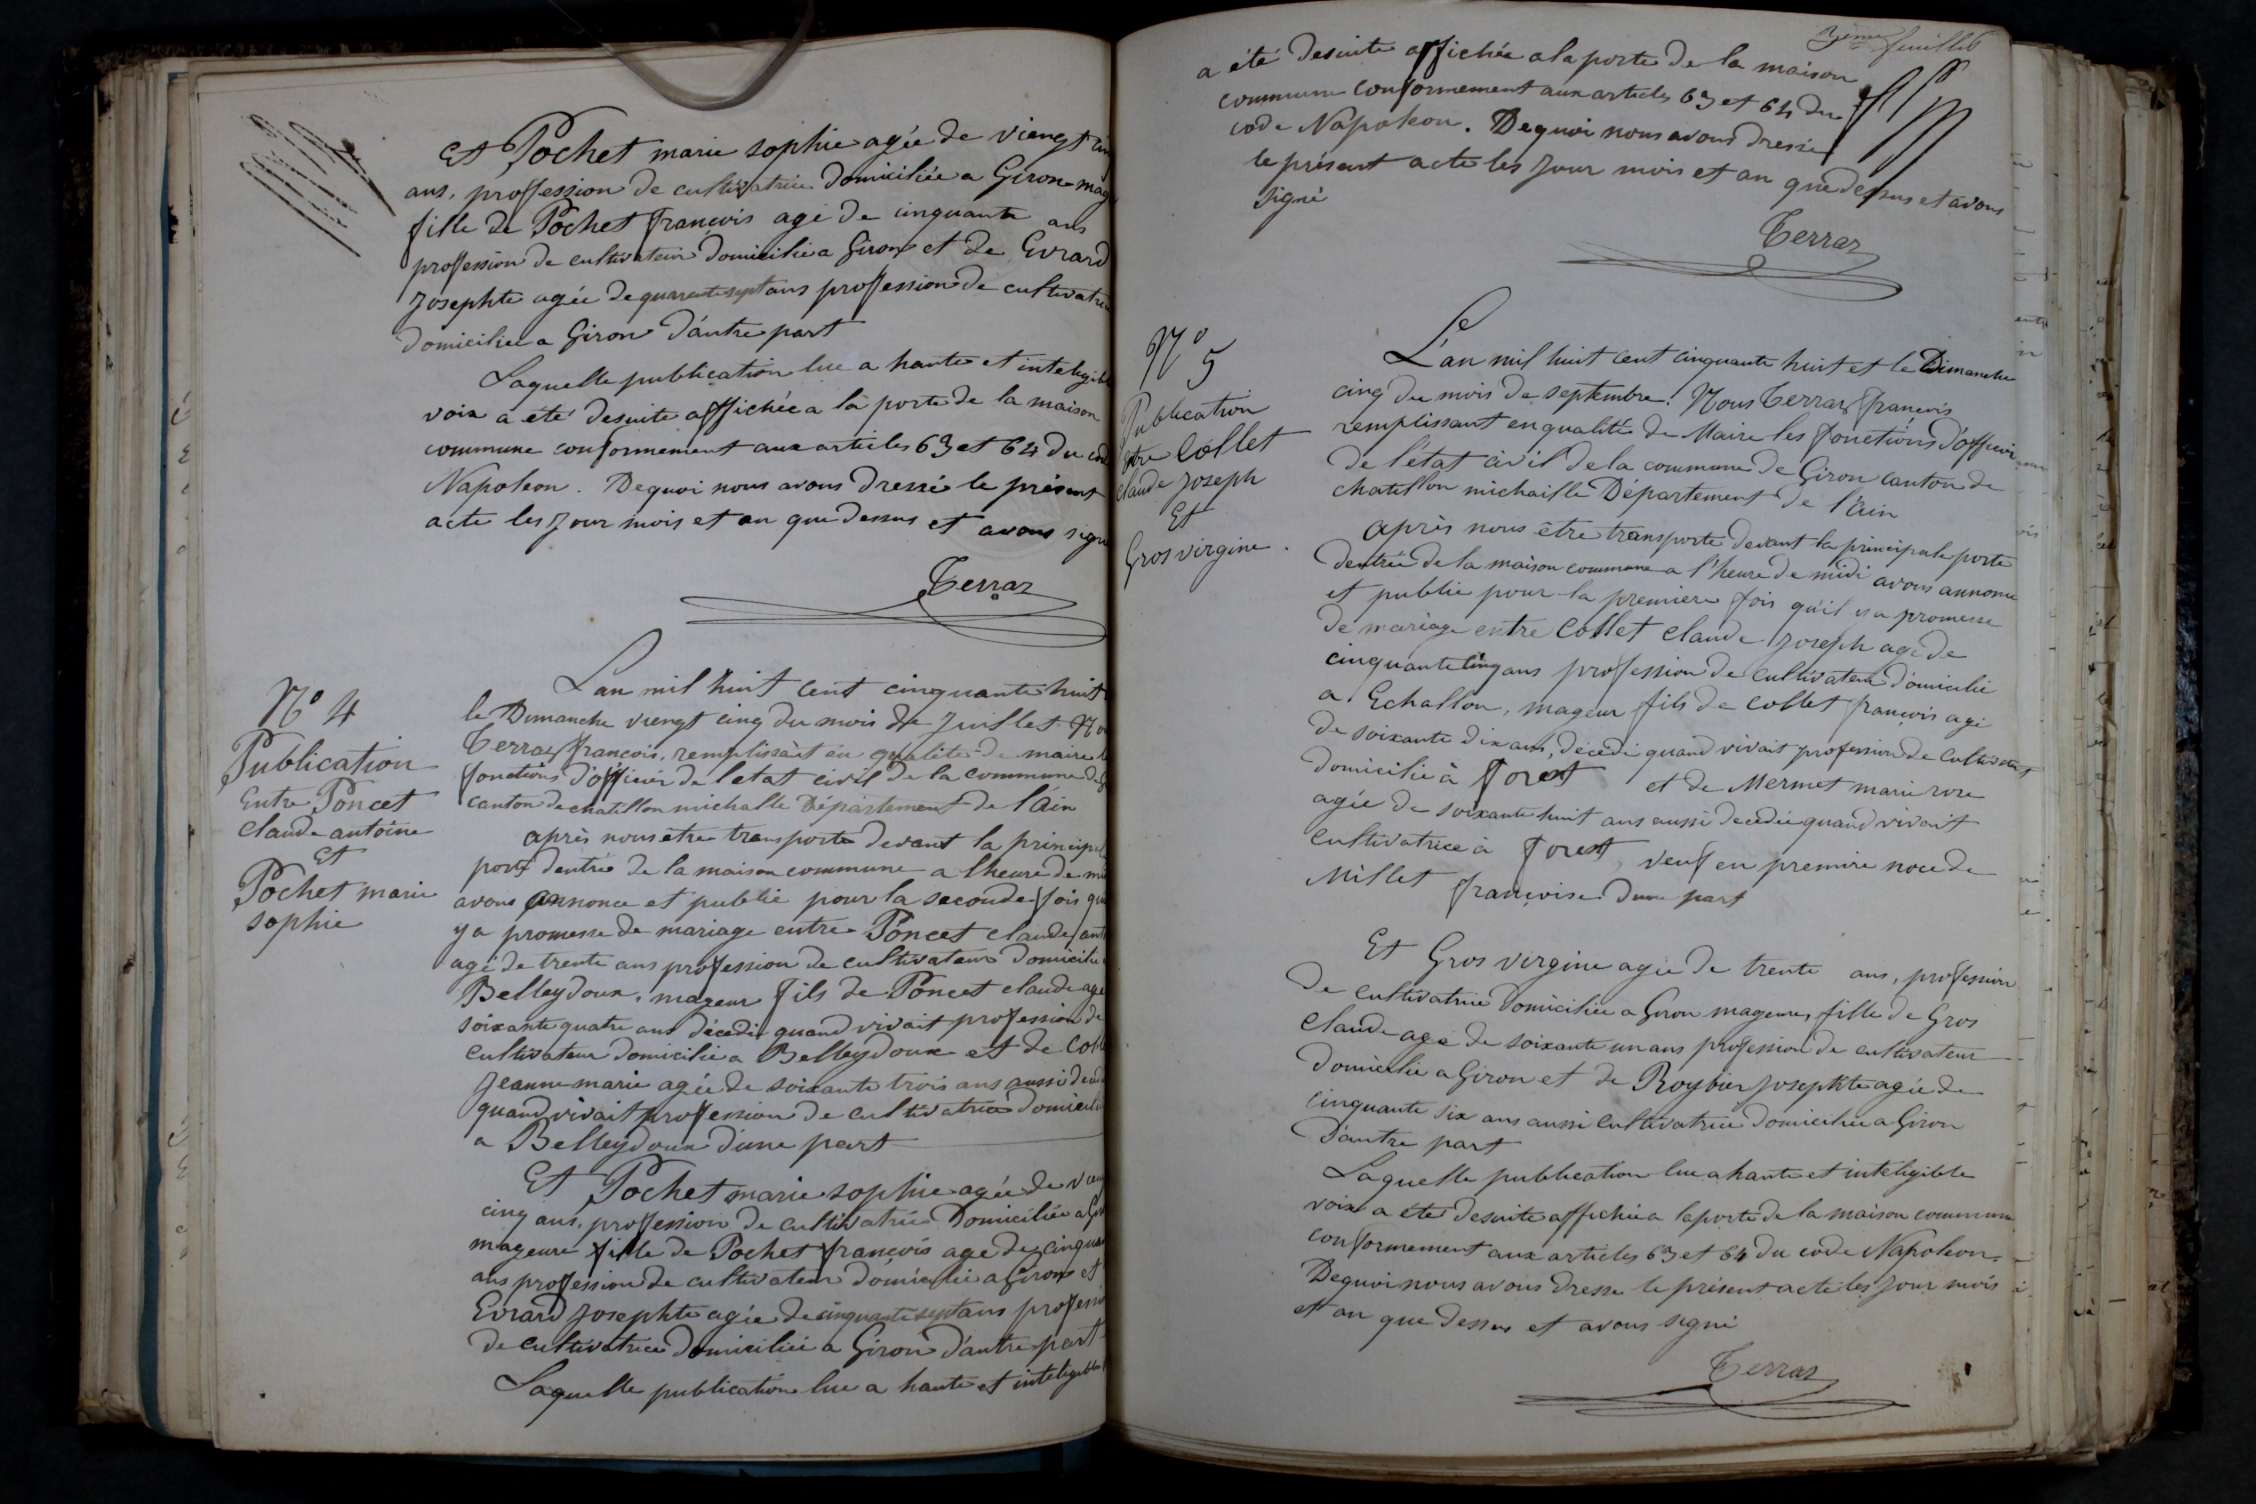 Et Pochet marie sophie agée de viengt cin
ans, profession de cultivatrice domiciliée a Giron mag
fille de Pochet françois agé de cinquante ans
profession de cultivateur domicilié a Giron et de Evrard
Josephte agée de quarante sept ans profession de cultivatri
domiciliée a Giron d'autre part
Laquelle publication lue a haute et inteligible
voix a été desuite affichée a la porte de la maison
commune conformement aux articles 63 et 64 du code
Napoleon. Dequoi nous avons dressé le présent
acte les jour mois et an que dessus et avons signé
Terraz
N° 4
Publication
Entre Poncet
claude antoine
Et
Pochet marie
sophie
L'an mil huit cent cinquante huit
le Dimanche viengt cinq du mois de Juillet No
Terraz françois, remplissant en qualité de maire le
fonctions d'officier de l'etat civil de la commune de G
canton de chatillon michalle Département de l'Ain
après nous etre transporté devant la principal
porte dentrée de la maison commune a lheure de mi
avons annoncé et publié pour la seconde fois qu
y a promesse de mariage entre Poncet claude ant
agé de trente ans profession de cultivateur domicilié
Belleydoux, mageur fils de Poncet claude agé
soixante quatre ans décédé quand vivait profession de
cultivateur domicilié a Belleydoux et de Coll
Jeanne marie agée de soixante trois ans aussi décéd
quand vivait profession de cultivatrice domicili
a Belleydoux d'une part
Et Pochet marie sophie agée de vien
cinq ans, profession de cultivatrice Domiciliée a Gir
mageure fille de Pochet françois agé de cinquan
ans profession de cultivateur domicilié a Giron et
Evrard Josephte agée de cinquante sept ans professi
de cultivatrice domiciliée a Giron d'autre part
Laquelle publication lue a haute et inteligible
3ème feuillet
a été desuite affichée a la porte de la maison
commune conformement aux articles 63 et 64 du
code Napoleon. Dequoi nous avons dressé
le présent acte les jour mois et an que dessus et avons
signé
Terraz
N° 5
Publication
Entre Collet
claude Joseph
Et
Gros virgine.
L'an mil huit cent cinquante huit et le Dimanche
cinq du mois de septembre. Nous Terraz françois
remplissant en qualité de Maire les fonctions d'officier
de l'état civil de la commune de Giron canton de
chatillon michaille Département de l'Ain
Après nous être transporté devant la principale porte
dentrée de la maison commune a l'heure de midi avons annoncé
et publié pour la premiere fois qu'il y a promesse
de mariage entre Collet claude Joseph agé de
cinquante cinq ans profession de cultivateur domicilié
a Echallon, mageur fils de Collet françois agé
de soixante dix ans, décédé quand vivait profession de cultivateur
domicilié à forest et de Mermet marie rose
agée de soixante huit ans aussi decedée quand vivait
cultivatrice à forest, veuf en premire noce de
Millet françoise d'une part
Et Gros virgine agée de trente ans, profession
de cultivatrice domiciliée a Giron mageure, fille de Gros
Claude agé de soixante un ans profession de cultivateur
domicilié a Giron et de Roybier Josephte agée de
cinquante six ans aussi cultivatrice domiciliée a Giron
D'autre part
Laquelle publication lue a haute et inteligible
voix a été desuite affichée a la porte de la maison commune
conformement aux articles 63 et 64 du code Napoleon.
Dequoi nous avons dressé le présent acte les jour mois
et an que dessus et avons signé
Terraz